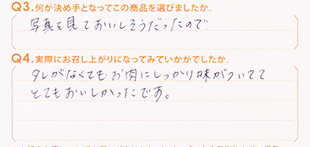 Q3.何が決め手となってこの商品を選びましたか。
写真を見ておいしそうだったので
Q4.実際にお召し上がりになってみていかがでしたか。
タレがなくてもお肉にしっかり味がついてて
とてもおいしかったです。